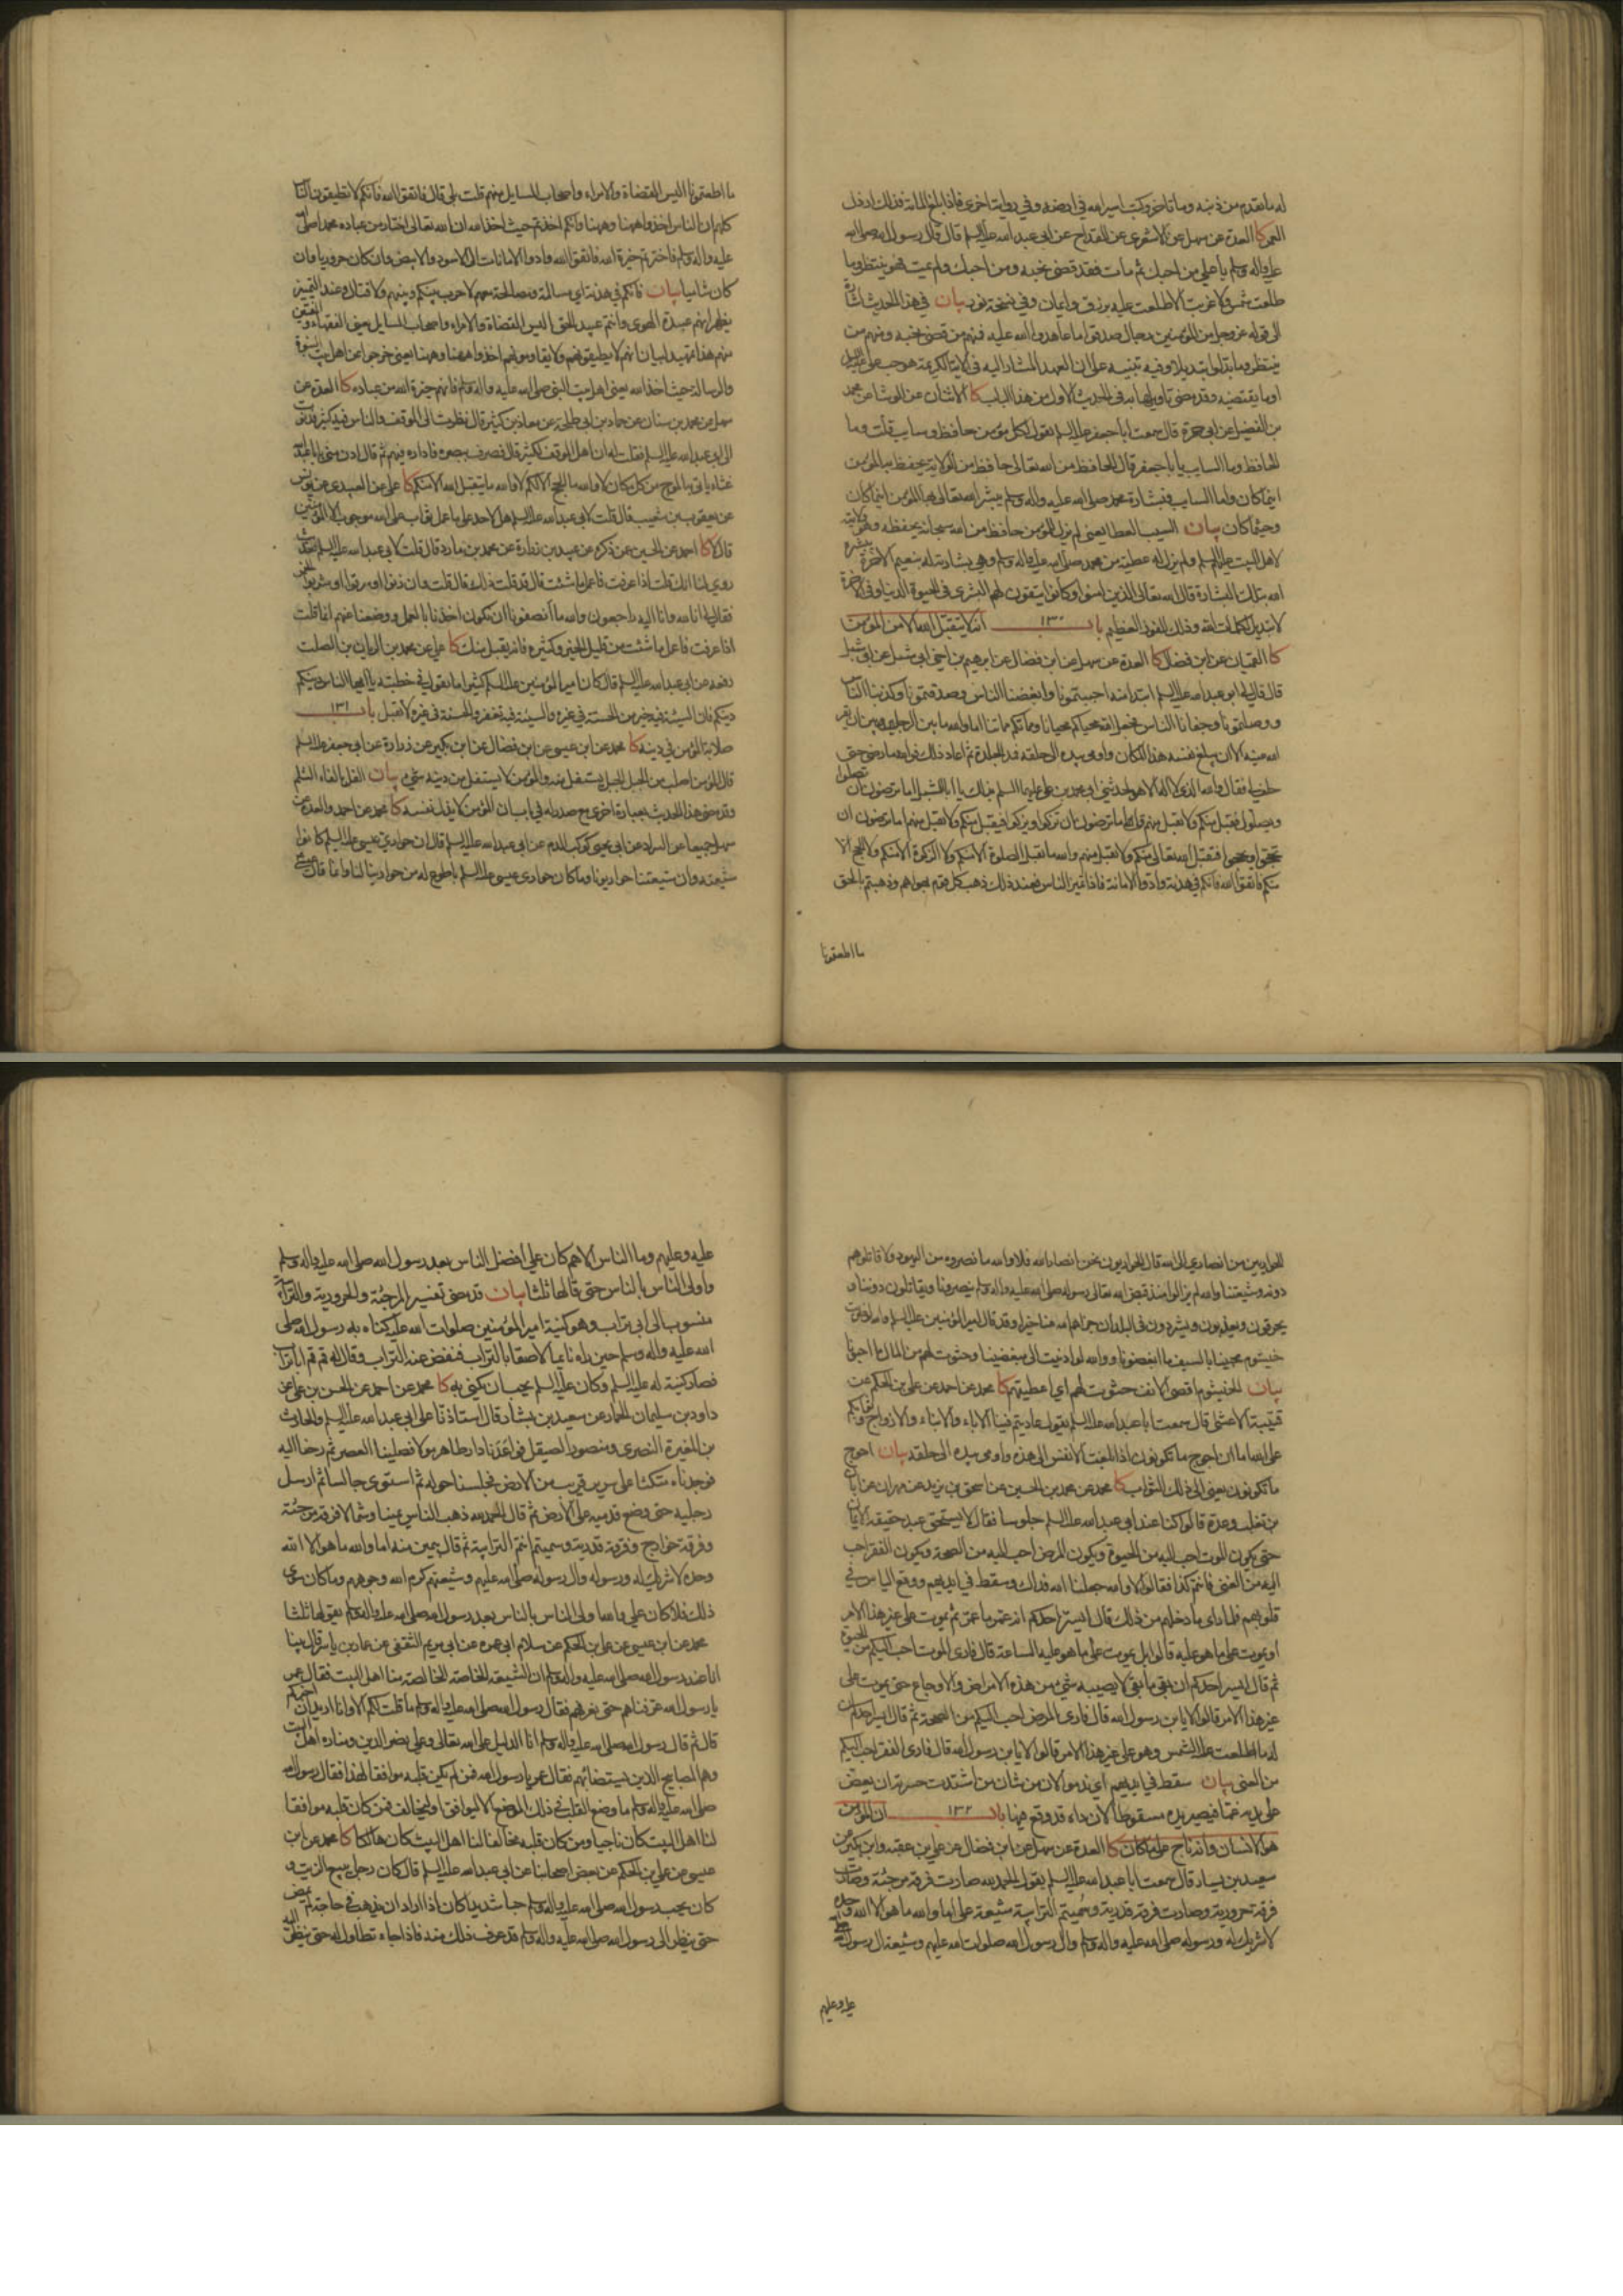 له ما تقدم من ذنبه وما تاخر وكتب اسير الله في ارضه وفي رواية اخرى فاذا بلغ المائة فذلك ارذل
العمر كا العدة عن سهل عن الاشعري عن القداح عن ابي عبد الله عليه السلم قال قال رسول الله صلى الله
عليه واله وسلم يا علي من احبك ثم مات فقد قضى نحبه ومن احبك ولم يمت فهو ينتظر وما
طلعت شمس ولا غربت الا طلعت عليه برزق وايمان وفي نسخة نور بيان في هذا الحديث اشارة
الى قوله عز وجل من المؤمنين رجال صدقوا ما عاهدوا الله عليه فمنهم من قضى نحبه ومنهم من
ينتظر وما بدلوا تبديلا وفيه تنبيه على ان العهد المشار اليه في الاية الكريمة هو حب علي
او ما يقتضيه وقد مضى تاويلها به في الحديث الاول من هذا الباب كا الاثنان عن الوشا عن محمد
بن الفضيل عن ابي حمزة قال سمعت ابا جعفر عليه السلم يقول لكل مؤمن حافظ وسايب قلت وما
الحافظ وما السايب يا با جعفر قال الحافظ من الله تعالى حافظ من الولاية يحفظ به المؤمن
اينما كان واما السايب فبشارة محمد صلى الله عليه واله وسلم يبشر الله تعالى بها المؤمن اينما كان
وحيثما كان بيان السيب العطا يعني لم يزل للمؤمن حافظ من الله سبحانه يحفظه وهو ولايته
لاهل البيت عليهم السلم ولم يزل له عطية من محمد صلى الله عليه واله وسلم وهي بشارته له بنعيم الاخرة يبشره
الله بتلك البشارة قال الله تعالى الذين امنوا وكانوا يتقون لهم البشرى في الحيوة الدنيا وفي الاخرة
لا تبديل لكلمات الله وذلك الفوز العظيم باب ١٣٠ انه لا يتقبل الله الا من المؤمن
كا القميان عن ابن فضال كا العدة عن سهل عن ابن فضال عن ابرهيم بن اخي ابي شبل عن ابي شبل
قال قال لي ابو عبد الله عليه السلم ابتداء منه احببتمونا وابغضنا الناس وصدقتمونا وكذبنا الناس
ووصلتمونا وجفانا الناس فجعل الله محياكم محيانا ومماتكم مماتنا اما والله ما بين الرجل وبين ان يقر
الله عينه الا ان يبلغ نفسه هذا المكان واومى بيده الى حلقه فمد الجلدة ثم اعاد ذلك فوالله ما رضي حتى
حلف لي فقال والله الذي لا اله الا هو لحدثني ابي محمد بن علي عليهما السلم بذلك يا ابا شبل اما ترضون ان تصلوا
ويصلوا فيقبل منكم ولا يقبل منهم اما ترضون ان تزكوا ويزكوا فيقبل منكم ولا يقبل منهم اما ترضون ان
تحجوا ويحجوا فيقبل الله تعالى منكم ولا يقبل منهم والله ما تقبل الصلوة الا منكم ولا الزكوة الا منكم ولا الحج الا
منكم فاتقوا الله فانكم في هدنة وادوا الامانة فاذا تميز الناس فعند ذلك ذهب كل قوم بهواهم وذهبتم بالحق
ما اطعتمونا
ما اطعتمونا اليس القضاة والامراء واصحاب المسايل منهم قلت بلى قال فاتقوا الله فانكم لا تطيقون الناس
كلهم ان الناس اخذوا ههنا وههنا وانكم اخذتم حيث اخذ الله ان الله تعالى اختار من عباده محمدا صلى الله
عليه واله وسلم فاخترتم خيرة الله فاتقوا الله وادوا الامانات الى الاسود والابيض وان كان حروريا وان
كان شاميا بيان فانكم في هدنة اي مسالمة ومصالحة معهم لا حرب بينكم وبينهم ولا قتال وعند التميز
يظهر انهم عبدة الهوى وانتم عبيد الحق اليس القضاة والامراء واصحاب المسايل يعني الفقهاء والمفتين
منهم هذا تمهيد لبيان انهم لا يطيقونهم ولا يقاومونهم اخذوا ههنا وههنا يعني خرجوا عن اهل بيت النبوة
والرسالة حيث اخذ الله يعني اهل بيت النبي صلى الله عليه واله وسلم فانهم خيرة الله من عباده كا العدة عن
سهل عن محمد بن سنان عن حماد بن ابي طلحة عن معاذ بن كثير قال نظرت الى الموقف والناس فيه كثير فدنوت
الى ابي عبد الله عليه السلم فقلت له ان اهل الموقف لكثير قال فصرف ببصره فاداره فيهم ثم قال ادن مني يا با عبد الله
غثاء ياتي به الموج من كل مكان لا والله ما الحج الا لكم لا والله ما يتقبل الله الا منكم كا علي عن العبيدي عن يونس
عن يعقوب بن شعيب قال قلت لابي عبد الله عليه السلم هل لاحد على ما عمل ثواب على الله موجوب الا المؤمنين
قال لا كا احمد عن الحسين عمن ذكره عن عبيد بن زرارة عن محمد بن مارد قال قلت لابي عبد الله عليه السلم حديث
روي لنا انك قلت اذا عرفت فاعمل ما شئت قال قد قلت ذلك قال قلت وان زنوا او سرقوا او شربوا الخمر
فقال لي انا لله وانا اليه راجعون والله ما انصفونا ان نكون اخذنا بالعمل ووضعنا عنهم انما قلت
اذا عرفت فاعمل ما شئت من قليل الخير وكثيره فانه يقبل منك كا علي عن محمد بن الريان بن الصلت
رفعه عن ابي عبد الله عليه السلم قال كان امير المؤمنين عليه السلم كثيرا ما يقول في خطبته يا ايها الناس دينكم
دينكم فان السيئة فيه خير من الحسنة في غيره والسيئة فيه تغفر والحسنة في غيره لا تقبل باب ١٣١
صلابة المؤمن في دينه كا محمد عن ابن عيسى عن ابن فضال عن ابن بكير عن زرارة عن ابي جعفر عليه السلم
قال المؤمن اصلب من الجبل الجبل يستفل منه والمؤمن لا يستفل من دينه شيء بيان الفل بالفاء الثلم
وقد مضى هذا الحديث بعبارة اخرى مع صدر له في باب ان المؤمن لا يذل نفسه كا محمد عن احمد والعدة عن
سهل جميعا عن السراد عن ابي يحيى كوكب الدم عن ابي عبد الله عليه السلم قال ان حواري عيسى عليه السلم كانوا
شيعته وان شيعتنا حواريونا وما كان حواري عيسى عليه السلم باطوع له من حوارينا لنا وانما قال عيسى
للحواريين من انصاري الى الله قال الحواريون نحن انصار الله فلا والله ما نصروه من اليهود ولا قاتلوهم
دونه وشيعتنا والله لم يزالوا منذ قبض الله تعالى رسوله صلى الله عليه واله وسلم ينصرونا ويقاتلون دوننا و
يحرقون ويعذبون ويشردون في البلدان جزاهم الله عنا خيرا وقد قال امير المؤمنين عليه السلم والله لو ضربت
خيشوم محبينا بالسيف ما ابغضونا ووالله لو ادنيت الى مبغضينا وحثوت لهم من المال ما احبونا
بيان الخيشوم اقصى الانف حثوت لهم اي اعطيتهم كا محمد عن احمد عن علي بن الحكم عن
قتيبة الاعشى قال سمعت ابا عبد الله عليه السلم يقول عاديتم فينا الاباء والابناء والازواج وثوابكم
على الله اما ان احوج ما تكونون اذا بلغت الانفس الى هذه واومى بيده الى حلقه بيان احوج
ما تكونون يعني الى ذلك الثواب كا محمد عن محمد بن الحسين عن اسحق بن يزيد عن مهران عن ابان
بن تغلب وعدة قالوا كنا عند ابي عبد الله عليه السلم جلوسا فقال لا يستحق عبد حقيقة الايمان
حتى يكون الموت احب اليه من الحيوة ويكون المرض احب اليه من الصحة ويكون الفقر احب
اليه من الغنى فانتم كذا فقالوا لا والله جعلنا الله فداك وسقط في ايديهم ووقع الياس في
قلوبهم فلما راى ما دخلهم من ذلك قال ايسر احدكم انه عمر ما عمر ثم يموت على غير هذا الامر
او يموت على ما هو عليه قالوا بل يموت على ما هو عليه الساعة قال فارى الموت احب اليكم من الحيوة
ثم قال ايسر احدكم ان بقي ما بقي لا يصيبه شيء من هذه الامراض والاوجاع حتى يموت على
غير هذا الامر قالوا لا يا بن رسول الله قال فارى المرض احب اليكم من الصحة ثم قال ايسر احدكم ان
له ما طلعت عليه الشمس وهو على غير هذا الامر قالوا لا يا بن رسول الله قال فارى الفقر احب اليكم
من الغنى بيان سقط في ايديهم اي ندموا لان من شان من اشتدت حسرته ان يعض
على يديه غما فيصير يده مسقوطا لان فاه قد وقع فيها باب ١٣٢ ان المؤمن
هو الانسان وانه ناج على ما كان كا العدة عن سهل عن ابن فضال عن علي بن عقبة وابن بكير عن
سعيد بن يسار قال سمعت ابا عبد الله عليه السلم يقول الحمد لله صارت فرقة مرجئة وصارت
فرقة حرورية وصارت فرقة قدرية وسميتم الترابية شيعة علي اما والله ما هو الا الله وحده
لا شريك له ورسوله صلى الله عليه واله وسلم وال رسول الله صلوات الله عليهم وشيعة ال رسول الله
عليه وعليهم
عليه وعليهم وما الناس الا هم كان علي افضل الناس بعد رسول الله صلى الله عليه واله وسلم
واولى الناس بالناس حتى قالها ثلثا بيان قد مضى تفسير المرجئة والحرورية والترابية
منسوب الى ابي تراب وهو كنية امير المؤمنين صلوات الله عليه كناه به رسول الله صلى
الله عليه واله وسلم حين راه نايما لاصقا بالتراب فنفض عنه التراب وقال له قم قم ابا تراب
فصار كنية له عليه السلم وكان عليه السلم يحب ان يكنى به كا محمد عن احمد عن الحسن بن علي عن
داود بن سليمان الحمار عن سعيد بن يسار قال استاذنا على ابي عبد الله عليه السلم والحارث
بن المغيرة النصري ومنصور الصيقل فواعدنا دار طاهر مولاه فصلينا العصر ثم رحنا اليه
فوجدناه متكئا على سرير قريب من الارض فجلسنا حوله ثم استوى جالسا ثم ارسل
رجليه حتى وضع قدميه على الارض ثم قال الحمد لله ذهب الناس يمينا وشمالا فرقة مرجئة
وفرقة خوارج وفرقة قدرية وسميتم انتم الترابية ثم قال بيمين منه اما والله ما هو الا الله
وحده لا شريك له ورسوله وال رسوله صلى الله عليهم وشيعتهم كرم الله وجوههم وما كان سوى
ذلك فلا كان علي والله اولى الناس بالناس بعد رسول الله صلى الله عليه واله وسلم يقولها ثلثا
محمد عن ابن عيسى عن علي بن الحكم عن سلام ابي عمرة عن ابي مريم الثقفي عن عمار بن ياسر قال بينا
انا عند رسول الله صلى الله عليه واله وسلم ان الشيعة الخاصة الخالصة منا اهل البيت فقال عمر
يا رسول الله عرفناهم حتى نعرفهم فقال رسول الله صلى الله عليه واله وسلم ما قلت لكم الا وانا اريد ان اخبركم
قال ثم قال رسول الله صلى الله عليه واله وسلم انا الدليل على الله تعالى وعلي نصر الدين ومناره اهل البيت
وهم المصابيح الذين يستضاء بهم فقال عمر يا رسول الله فمن لم يكن قلبه موافقا لهذا فقال رسول الله
صلى الله عليه واله وسلم ما وضع القلب في ذلك الموضع الا ليوافق او ليخالف فمن كان قلبه موافقا
لنا اهل البيت كان ناجيا ومن كان قلبه مخالفا لنا اهل البيت كان هالكا كا محمد عن ابن
عيسى عن علي بن الحكم عن بعض اصحابنا عن ابي عبد الله عليه السلم قال كان رجل يبيع الزيت و
كان يحب رسول الله صلى الله عليه واله وسلم حبا شديدا كان اذا اراد ان يذهب في حاجة لم يمض
حتى ينظر الى رسول الله صلى الله عليه واله وسلم قد عرف ذلك منه فاذا جاء تطاول له حتى ينظر اليه